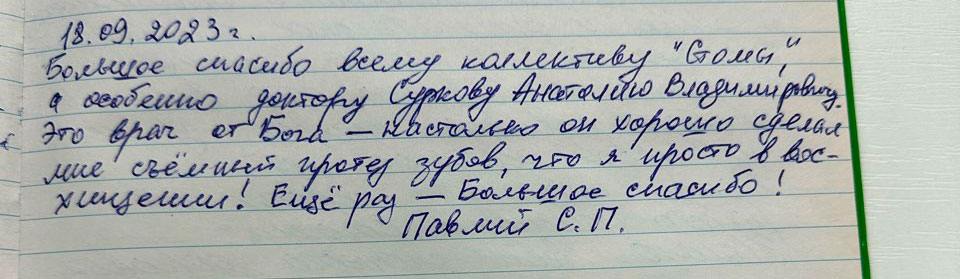 18.09.2023 г.
Большое спасибо всему коллективу "Стомы",
а особенно доктору Суркову Анатолию Владимировичу.
Это врач от Бога — настолько он хорошо сделал
мне съёмный протез зубов, что я просто в вос-
хищении! Ещё раз — Большое спасибо!
Павлий С.П.